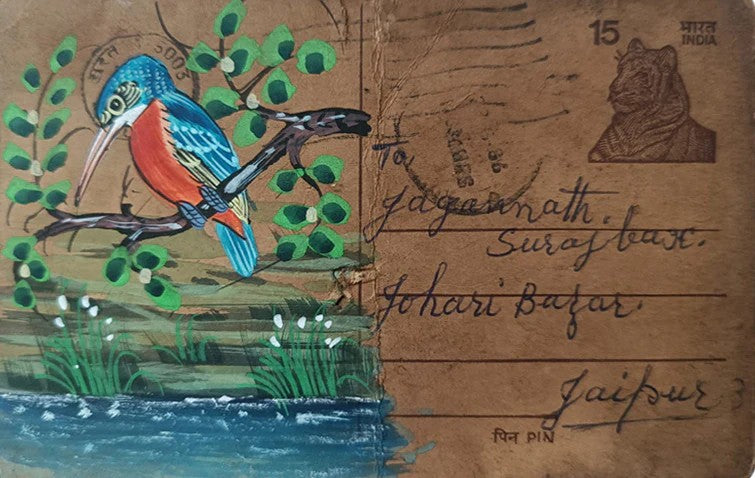 15 भारत
INDIA
भारत
To
Jagannath.
Surajbax.
Johari Bazar.
Jaipur 3
पिन PIN